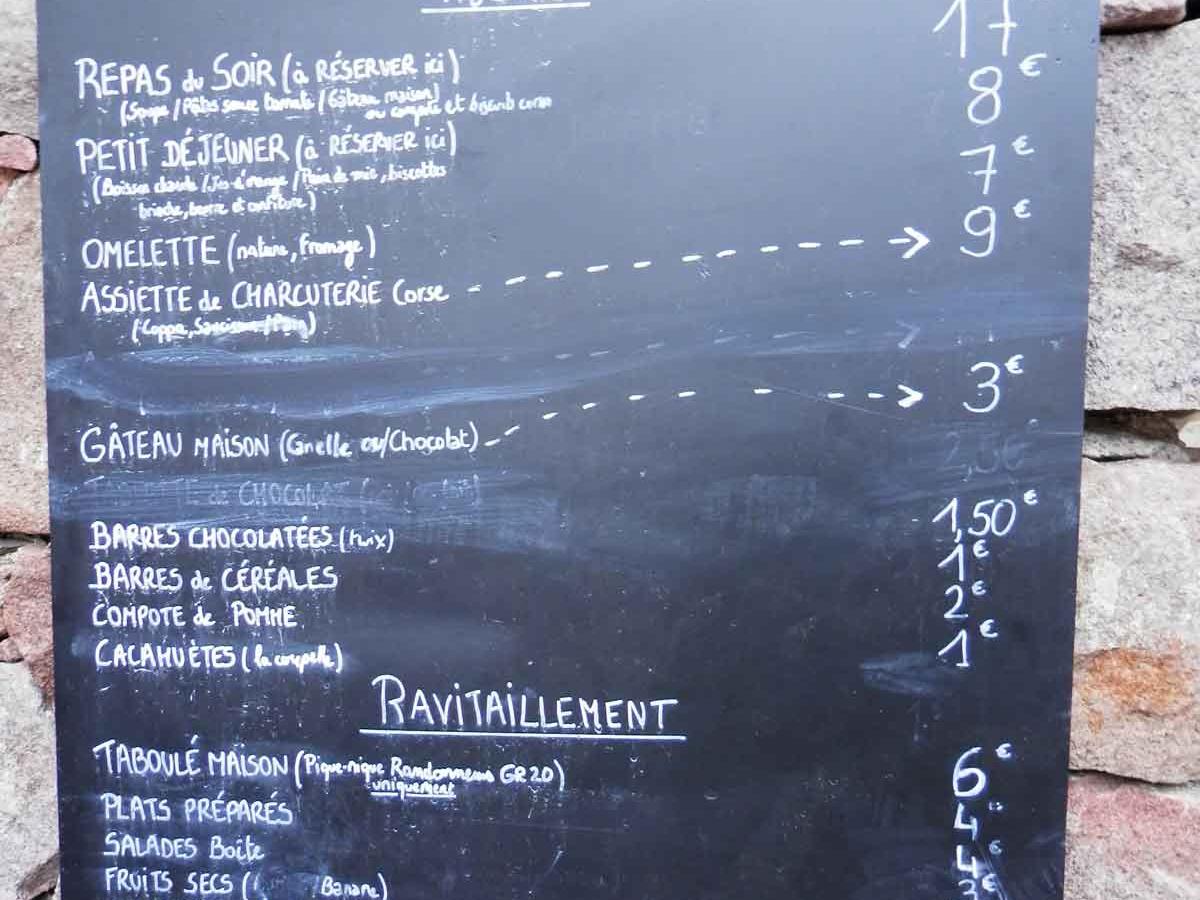 17
REPAS du SOIR (à RÉSERVER ici) 8€
(Soupe / Pâtes sauce tomate / Gâteau maison)
ou compote et biscuit corse
PETIT DÉJEUNER (à RÉSERVER ici) 7€
(Boisson chaude / Jus d'orange / Pain de mie, biscottes
brioche, beurre et confiture)
OMELETTE (nature, fromage) 9€
ASSIETTE de CHARCUTERIE Corse
(Coppa, Saucisson / Pain)
3€
GÂTEAU MAISON (Canelle ou/Chocolat)
2,50€
de CHOCOLAT
BARRES CHOCOLATÉES (twix) 1,50€
BARRES de CÉRÉALES 1€
COMPOTE de POMME 2€
CACAHUÈTES (la coupelle) 1€
RAVITAILLEMENT
TABOULÉ MAISON (Pique-nique Randonneurs GR20) 6€
uniquement
PLATS PRÉPARÉS 4
SALADES Boîte 4€
FRUITS SECS ( Banane) 3€